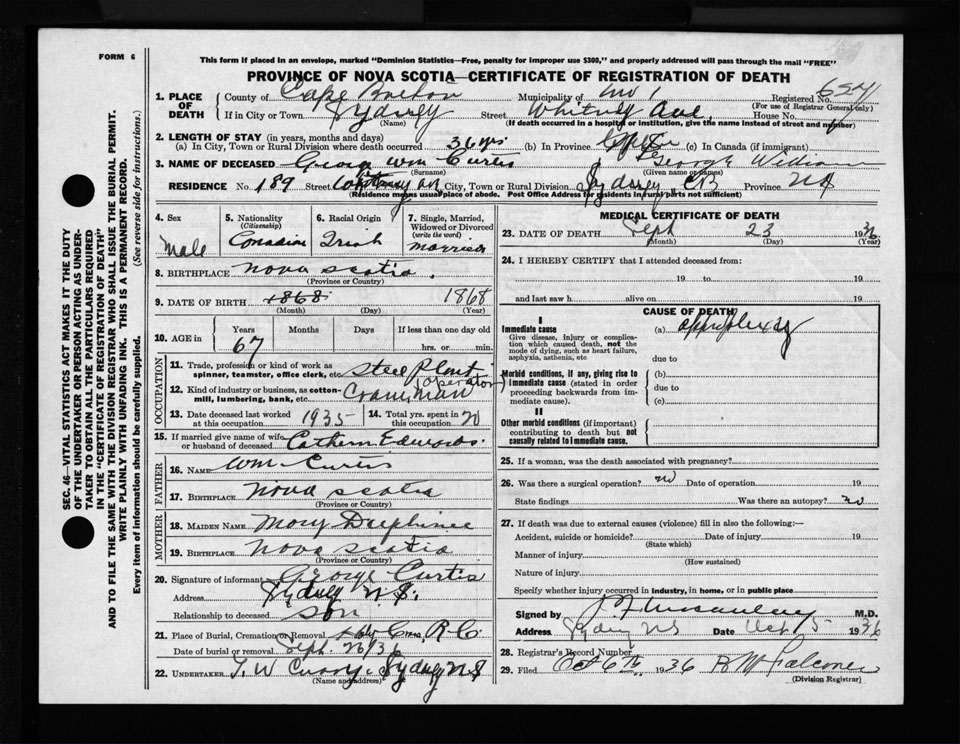 FORM 6
This form if placed in an envelope, marked "Dominion Statistics—Free, penalty for improper use $300," and properly addressed will pass through the mail "FREE"
PROVINCE OF NOVA SCOTIA—CERTIFICATE OF REGISTRATION OF DEATH
1. PLACE OF DEATH County of Cape Breton Municipality of No 1 Registered No. 654
(For use of Registrar General only)
If in City or Town Sydney Street Whitney Ave House No.
(Name) (If death occurred in a hospital or institution, give the name instead of street and number)
2. LENGTH OF STAY (in years, months and days)
(a) In City, Town or Rural Division where death occurred 36 yrs (b) In Province (c) In Canada (if immigrant)
3. NAME OF DECEASED George Wm Curtis George William
(Surname) (Given name or names)
RESIDENCE No. 189 Street Whitney Ave City, Town or Rural Division Sydney, CB Province NS
(Residence means usual place of abode. Post Office Address for residents in rural parts not sufficient)
4. Sex
Male
5. Nationality
(Citizenship)
Canadian
6. Racial Origin
Irish
7. Single, Married, Widowed or Divorced
(write the word)
Married
8. BIRTHPLACE Nova Scotia.
(Province or Country)
9. DATE OF BIRTH 1868 1868
(Month) (Day) (Year)
10. AGE in Years Months Days If less than one day old
67 hrs. or min.
OCCUPATION
11. Trade, profession or kind of work as spinner, teamster, office clerk, etc Steel Plant
12. Kind of industry or business, as cotton-mill, lumbering, bank, etc. Crane man (operator)
13. Date deceased last worked at this occupation 1935
14. Total yrs. spent in 20
15. If married give name of wife or husband of deceased Cathern Edwards.
FATHER
16. NAME Wm Curtis
17. BIRTHPLACE Nova Scotia
(Province or Country)
MOTHER
18. MAIDEN NAME Mary
19. BIRTHPLACE Nova Scotia
(Province or Country)
20. Signature of informant George Curtis
Address Sydney N.S.
Relationship to deceased son
21. Place of Burial, Cremation or Removal Holy Cross R.C.
Date of burial or removal Sept. 26/36
22. UNDERTAKER T. W. Curry. Sydney NS
(Name and address)
MEDICAL CERTIFICATE OF DEATH
23. DATE OF DEATH Sept 23 1936
(Month) (Day) (Year)
24. I HEREBY CERTIFY that I attended deceased from:
19 to 19
and last saw h alive on 19
CAUSE OF DEATH
I
Immediate cause (a) apoplexy
Give disease, injury or complication which caused death, not the mode of dying, such as heart failure, asphyxia, asthenia, etc
due to
Morbid conditions, if any, giving rise to immediate cause (stated in order proceeding backwards from immediate cause). (b)
due to
(c)
II
Other morbid conditions (if important) contributing to death but not causally related to immediate cause.
25. If a woman, was the death associated with pregnancy?
26. Was there a surgical operation? no Date of operation 19
State findings Was there an autopsy? no
27. If death was due to external causes (violence) fill in also the following:—
Accident, suicide or homicide? Date of injury 19
(State which)
Manner of injury
(How sustained)
Nature of injury
Specify whether injury occurred in industry, in home, or in public place
Signed by M.D.
Address Sydney NS Date Oct 5 1936
28. Registrar's Record Number
29. Filed Oct 6th 1936 R M Falconer
(Division Registrar)
SEC. 46—VITAL STATISTICS ACT MAKES IT THE DUTY
OF THE UNDERTAKER OR PERSON ACTING AS UNDER-
TAKER TO OBTAIN ALL THE PARTICULARS REQUIRED
IN THE "CERTIFICATE OF REGISTRATION OF DEATH"
AND TO FILE THE SAME WITH THE DIVISION REGISTRAR WHO SHALL ISSUE THE BURIAL PERMIT.
WRITE PLAINLY WITH UNFADING INK. THIS IS A PERMANENT RECORD.
Every item of information should be carefully supplied. (See reverse side for instructions.)